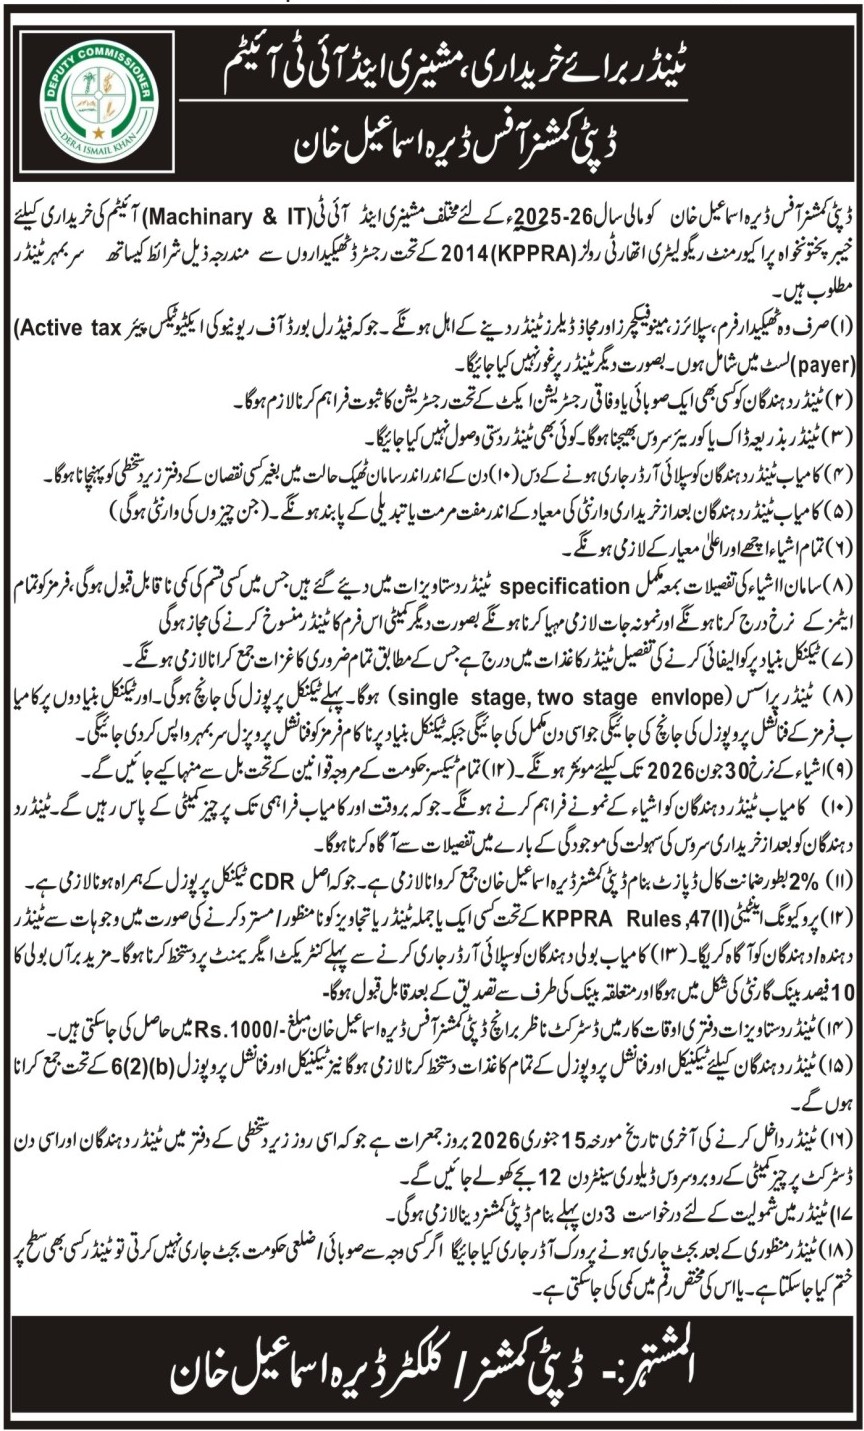 DEPUTY COMMISSIONER
DERA ISMAIL KHAN
ٹینڈر برائے خریداری، مشینری اینڈ آئی ٹی آئیٹم
ڈپٹی کمشنر آفس ڈیرہ اسماعیل خان
ڈپٹی کمشنر آفس ڈیرہ اسماعیل خان کو مالی سال 26-2025ء کے لئے مختلف مشینری اینڈ آئی ٹی (Machinary & IT) آئیٹم کی خریداری کیلئے
خیبر پختونخواہ پراکیورمنٹ ریگولیٹری اتھارٹی رولز (KPPRA) 2014 کے تحت رجسٹرڈ ٹھیکیداروں سے مندرجہ ذیل شرائط کیساتھ سربمہر ٹینڈر
مطلوب ہیں۔
(۱) صرف وہ ٹھیکیدار فرم، سپلائرز، مینوفیکچرز اور مجاز ڈیلرز ٹینڈر دینے کے اہل ہونگے۔ جو کہ فیڈرل بورڈ آف ریونیو کی ایکٹیو ٹیکس پیئر (Active tax
payer) لسٹ میں شامل ہوں۔ بصورت دیگر ٹینڈر پر غور نہیں کیا جائیگا۔
(۲) ٹینڈر دہندگان کو کسی بھی ایک صوبائی یا وفاقی رجسٹریشن ایکٹ کے تحت رجسٹریشن کا ثبوت فراہم کرنا لازم ہوگا۔
(۳) ٹینڈر بذریعہ ڈاک یا کوریئر سروس بھیجنا ہوگا۔ کوئی بھی ٹینڈر دستی وصول نہیں کیا جائیگا۔
(۴) کامیاب ٹینڈر دہندگان کو سپلائی آرڈر جاری ہونے کے دس (۱۰) دن کے اندر اندر سامان ٹھیک حالت میں بغیر کسی نقصان کے دفتر زیر دستخطی کو پہنچانا ہوگا۔
(۵) کامیاب ٹینڈر دہندگان بعد از خریداری وارنٹی کی معیاد کے اندر مفت مرمت یا تبدیلی کے پابند ہونگے۔ (جن چیزوں کی وارنٹی ہوگی)
(۶) تمام اشیاء اچھے اور اعلیٰ معیار کے لازمی ہونگے۔
(۸) سامان ااشیاء کی تفصیلات بمعہ مکمل specification ٹینڈر دستاویزات میں دیئے گئے ہیں جس میں کسی قسم کی کمی ناقابل قبول ہوگی، فرمز کو تمام
ایٹمز کے نرخ درج کرنا ہونگے اور نمونہ جات لازمی مہیا کرنا ہونگے بصورت دیگر کمیٹی اس فرم کا ٹینڈر منسوخ کرنے کی مجاز ہوگی
(۷) ٹیکنکل بنیاد پر کوالیفائی کرنے کی تفصیل ٹینڈر کاغذات میں درج ہے جس کے مطابق تمام ضروری کاغزات جمع کرانا لازمی ہونگے۔
(۸) ٹینڈر پراسس (single stage, two stage envlope) ہوگا۔ پہلے ٹیکنکل پرپوزل کی جانچ ہوگی۔ اور ٹیکنکل بنیادوں پر کامیا
ب فرمز کے فنانشل پروپوزل کی جانچ کی جائیگی جو اسی دن مکمل کی جائیگی جبکہ ٹیکنکل بنیاد پر ناکام فرمز کو فنانشل پروپزل سربمہر واپس کر دی جائیگی۔
(۹) اشیاء کے نرخ 30 جون 2026 تک کیلئے موثر ہونگے۔ (۱۲) تمام ٹیکسز حکومت کے مروجہ قوانین کے تحت بل سے منہا کیے جائیں گے۔
(۱۰) کامیاب ٹینڈر دہندگان کو اشیاء کے نمونے فراہم کرنے ہونگے۔ جو کہ بروقت اور کامیاب فراہمی تک پرچیز کمیٹی کے پاس رہیں گے۔ ٹینڈر د
دہندگان کو بعد از خریداری سروس کی سہولت کی موجودگی کے بارے میں تفصیلات سے آگاہ کرنا ہوگا۔
(۱۱) 2% بطور ضمانت کال ڈپازٹ بنام ڈپٹی کمشنر ڈیرہ اسماعیل خان جمع کروانا لازمی ہے۔ جو کہ اصل CDR ٹیکنکل پرپوزل کے ہمراہ ہونا لازمی ہے۔
(۱۲) پروکیونگ اینٹیٹی KPPRA Rules ,47(I) کے تحت کسی ایک یا جملہ ٹینڈر یا تجاویز کو نامنظور / مسترد کرنے کی صورت میں وجوہات سے ٹینڈر
دہندہ / دہندگان کو آگاہ کریگا۔ (۱۳) کامیاب بولی دہندگان کو سپلائی آرڈر جاری کرنے سے پہلے کنٹریکٹ ایگریمنٹ پر دستخط کرنا ہوگا۔ مزید برآں بولی کا
10 فیصد بینک گارنٹی کی شکل میں ہوگا اور متعلقہ بینک کی طرف سے تصدیق کے بعد قابل قبول ہوگا۔
(۱۴) ٹینڈر دستاویزات دفتری اوقات کار میں ڈسٹرکٹ ناظر برانچ ڈپٹی کمشنر آفس ڈیرہ اسماعیل خان مبلغ -/Rs.1000 میں حاصل کی جاسکتی ہیں۔
(۱۵) ٹینڈر دہندگان کیلئے ٹیکنیکل اور فنانشل پروپوزل کے تمام کاغذات دستخط کرنا لازمی ہوگا نیز ٹیکنیکل اور فنانشل پروپوزل 6(2)(b) کے تحت جمع کرانا
ہوں گے۔
(۱۶) ٹینڈر داخل کرنے کی آخری تاریخ مورخہ 15 جنوری 2026 بروز جمعرات ہے جو کہ اسی روز زیر دستخطی کے دفتر میں ٹینڈر دہندگان اور اسی دن
ڈسٹرکٹ پرچیز کمیٹی کے روبرو سروس ڈیلوری سینٹر دن 12 بجے کھولے جائیں گے۔
۱۷) ٹینڈر میں شمولیت کے لئے درخواست 3 دن پہلے بنام ڈپٹی کمشنر دینا لازمی ہوگی۔
(۱۸) ٹینڈر منظوری کے بعد بجٹ جاری ہونے پر ورک آڈر جاری کیا جائیگا اگر کسی وجہ سے صوبائی / ضلعی حکومت بجٹ جاری نہیں کرتی تو ٹینڈر کسی بھی سطح پر
ختم کیا جاسکتا ہے۔ یا اس کی مختص رقم میں کمی کی جاسکتی ہے۔
المشتہر:۔ ڈپٹی کمشنر / کلکٹر ڈیرہ اسماعیل خان